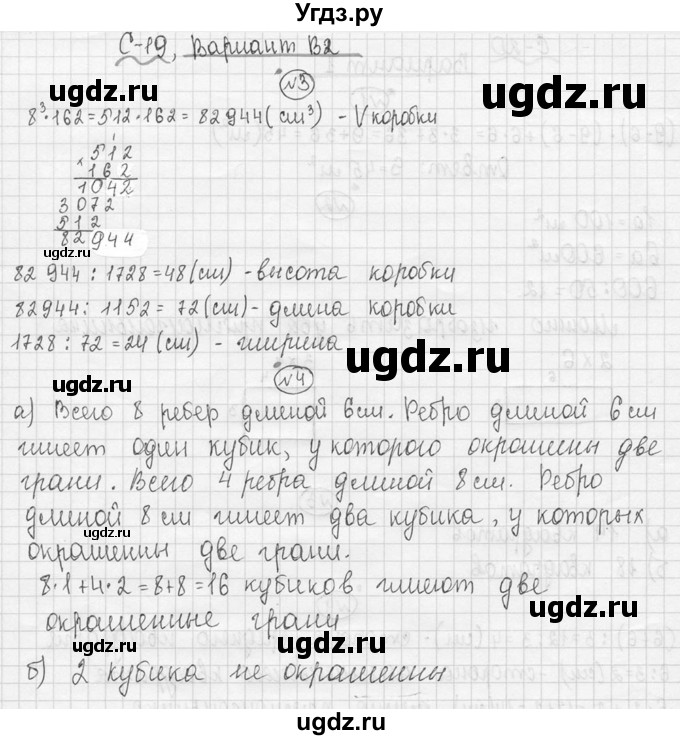 Угдз.ру
С-19, Вариант В2
ugdz.ru
№3
8³·162=512·162=82944(см³) - V коробки
512
× 162
1042
3072
512
82944
ugdz.ru
ugdz.ru
82 944 : 1728=48(см) - высота коробки
82944: 1152= 72(см)- длина коробки
1728 : 72 =24 (см) - ширина
№4
ugdz.ru
ugdz.ru
а) Всего 8 ребер длиной 6см. Ребро длиной 6 см
имеет один кубик, у которого окрашены две
грани. Всего 4 ребра длиной 8см. Ребро
длиной 8 см имеет два кубика, у которых
окрашенны две грани.
ugdz.ru
ugdz.ru
8·1+4·2=8+8=16 кубиков имеют две
окрашенные грани
ugdz.ru
б) 2 кубика не окрашенны
ugdz.ru
ugdz.ru